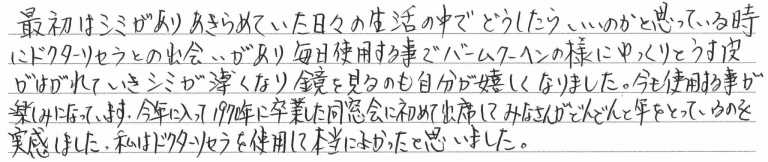 最初はシミがありあきらめていた日々の生活の中でどうしたらいいのかと思っている時
にドクターリセラとの出会いがあり毎日使用する事でバームクーヘンの様にゆっくりとうす皮
がはがれていきシミが薄くなり鏡を見るのも自分が嬉しくなりました。今も使用する事が
楽しみになっています。今年に入って1970年に卒業した同窓会に初めて出席してみなさんがどんどんと年をとっているのを
実感しました。私はドクターリセラを使用して本当によかったと思いました。